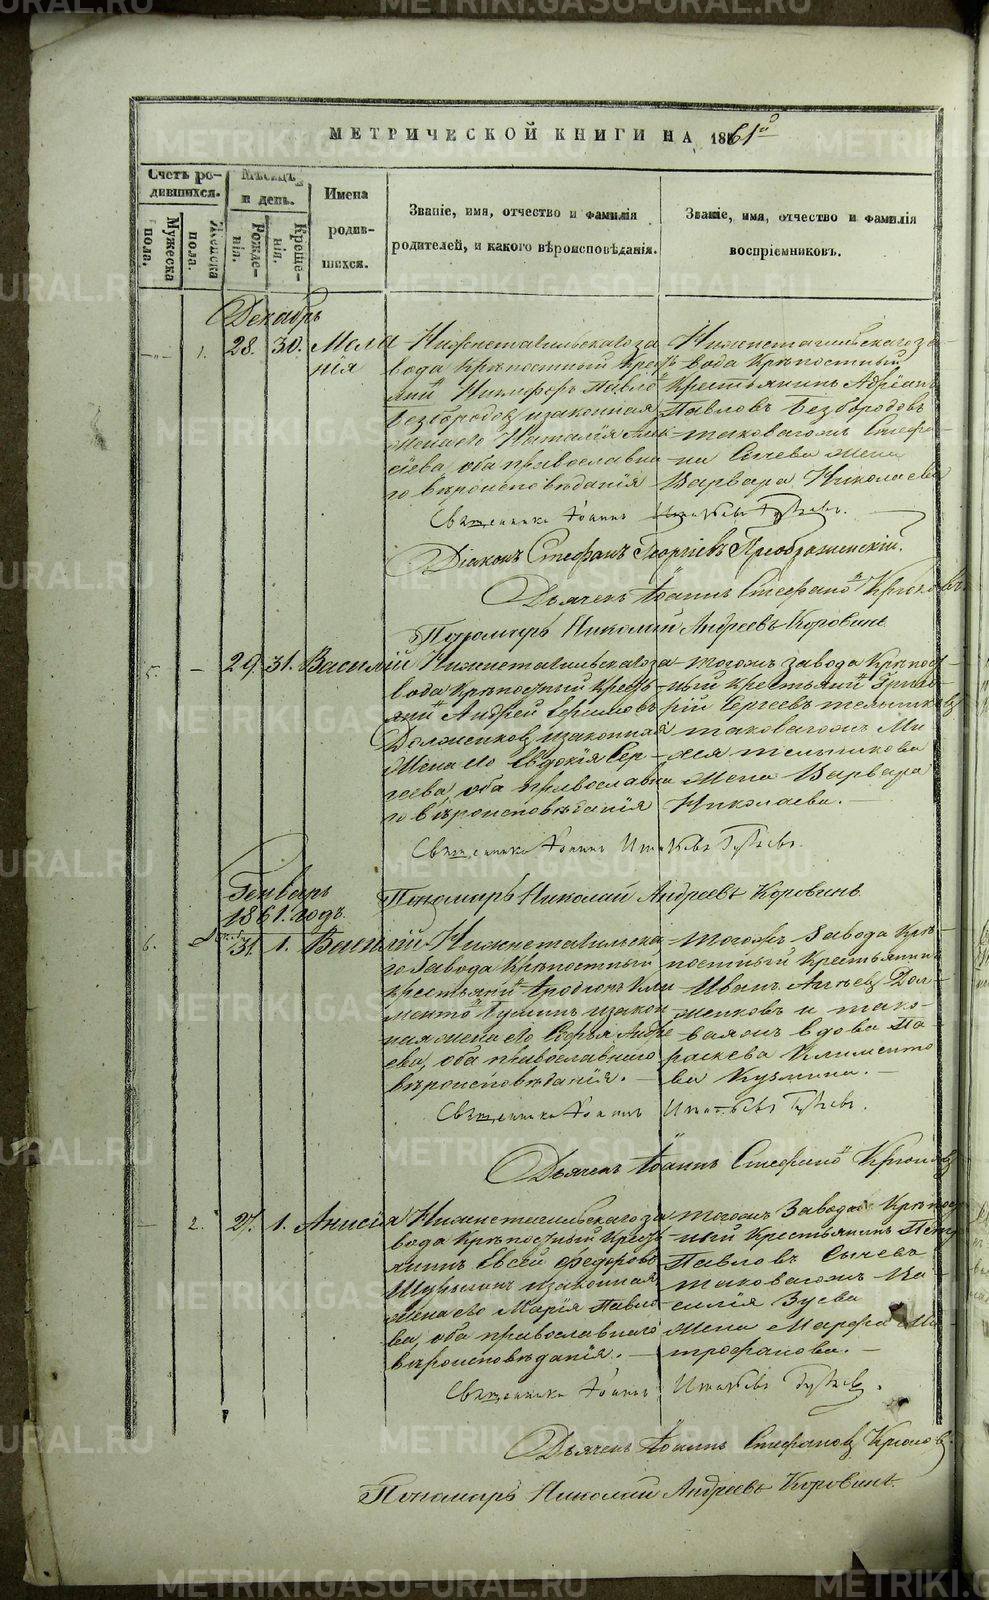 МЕТРИЧЕСКОЙ КНИГИ НА 1861й
Счетъ ро-
дившихся.
Мужеска пола.
Женска пола.
Мѣсяцъ
и день.
Рожде-
нія.
Креще-
нія.
Имена
родив-
шихся.
Званіе, имя, отчество и фамилія
родителей, и какого вѣроисповѣданія.
Званіе, имя, отчество и фамилія
воспріемниковъ.
Декабрь
1. 28. 30. Мела
нія
Нижнетагильскаго за
вода Крѣпостный Крест
янинъ Никифоръ Павло
Безбородов, и законная
жена его Наталія Алек
сіева, оба православна
го вѣроисповѣданія
Нижнетагильскаго за
вода Крѣпостный
Крестьянинъ Адріанъ
Павловъ Безбородовъ
и таковагожъ Стефа
на Сычева жена
Варвара Николаева
Священникъ Іоаннъ
Діаконъ Стефанъ Георгіевъ Преображенскій.
Дьячекъ Іоаннъ Стефановъ Крюковъ
Пономарь Николай Андреевъ Коровинъ
5. – 29. 31. Василій
Нижнетагильскаго за
вода Крѣпостный Кресть
янинъ Андрей Ефимовъ
Долженков, и законная
жена его Евдокія Сер
геева, оба православна
го вѣроисповѣданія
тогожъ завода Крѣпост
ный крестьянинъ Григо
рій Сергеевъ Мельников
таковагожъ Ми
хея Мельникова
жена Варвара
Николаева. –
Священникъ Іоаннъ
Пономарь Николай Андреевъ Коровинъ.
Генварь
1861. годъ.
6. – 31. 1. Василій
Нижнетагильска
го Завода Крѣпостный
крестьянинъ Иродіонъ Кли
ментов Кузминъ и закон
ная жена его Софья Андре
ева, оба православнаго
вѣроисповѣданія. –
тогожъ Завода Крѣ
постный Крестьянинъ
Иванъ Дол
женковъ и тако
ваяжъ вдова Па
раскева Климентo
ва Кузмина. –
Священникъ Іоаннъ
Дьячекъ Іоаннъ Стефановъ Крюковъ
– 2. 27. 1. Анисія
Нижнетагильскаго за
вода Крѣпостный Крест
янинъ Евсей Федоровъ
и законная
жена его Марія Павло
ва, оба православнаго
вѣроисповѣданія. –
тогожъ Завода Крѣпост
ный Крестьянинъ Петръ
Павловъ Сычевъ
таковагожъ Ва
силія Зуева
жена Марфа Ми
трофанова. –
Священникъ Іоаннъ
Дьячекъ Іоаннъ Стефановъ Крюковъ.
Пономарь Николай Андреевъ Коровинъ.
METRIKI.GASO-URAL.RU